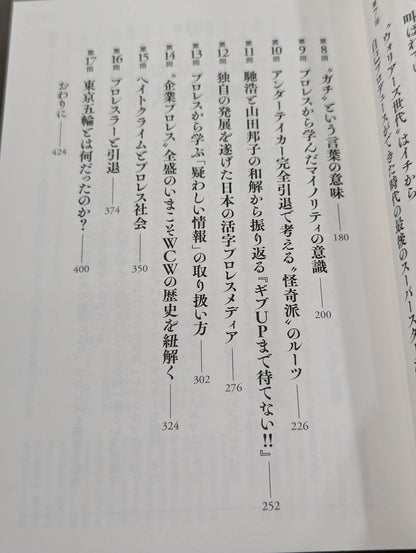 "ウォリアーズ世代"はイチから
自己プロデュースができた時代の最後のスーパースタ
第8回 "ガチ"という言葉の意味 180
第9回 プロレスから学んだマイノリティの意識 200
第10回 アンダーテイカー完全引退で考える"怪奇派"のルーツ 226
第11回 馳浩と山田邦子の和解から振り返る『ギブUPまで待てない!!』 252
第12回 独自の発展を遂げた日本の活字プロレスメディア 276
第13回 プロレスから学ぶ「疑わしい情報」の取り扱い方 302
第14回 "企業プロレス"全盛のいまこそWCWの歴史を紐解く 324
第15回 ヘイトクライムとプロレス社会 350
第16回 プロレスラーと引退 374
第17回 東京五輪とは何だったのか? 400
おわりに 424